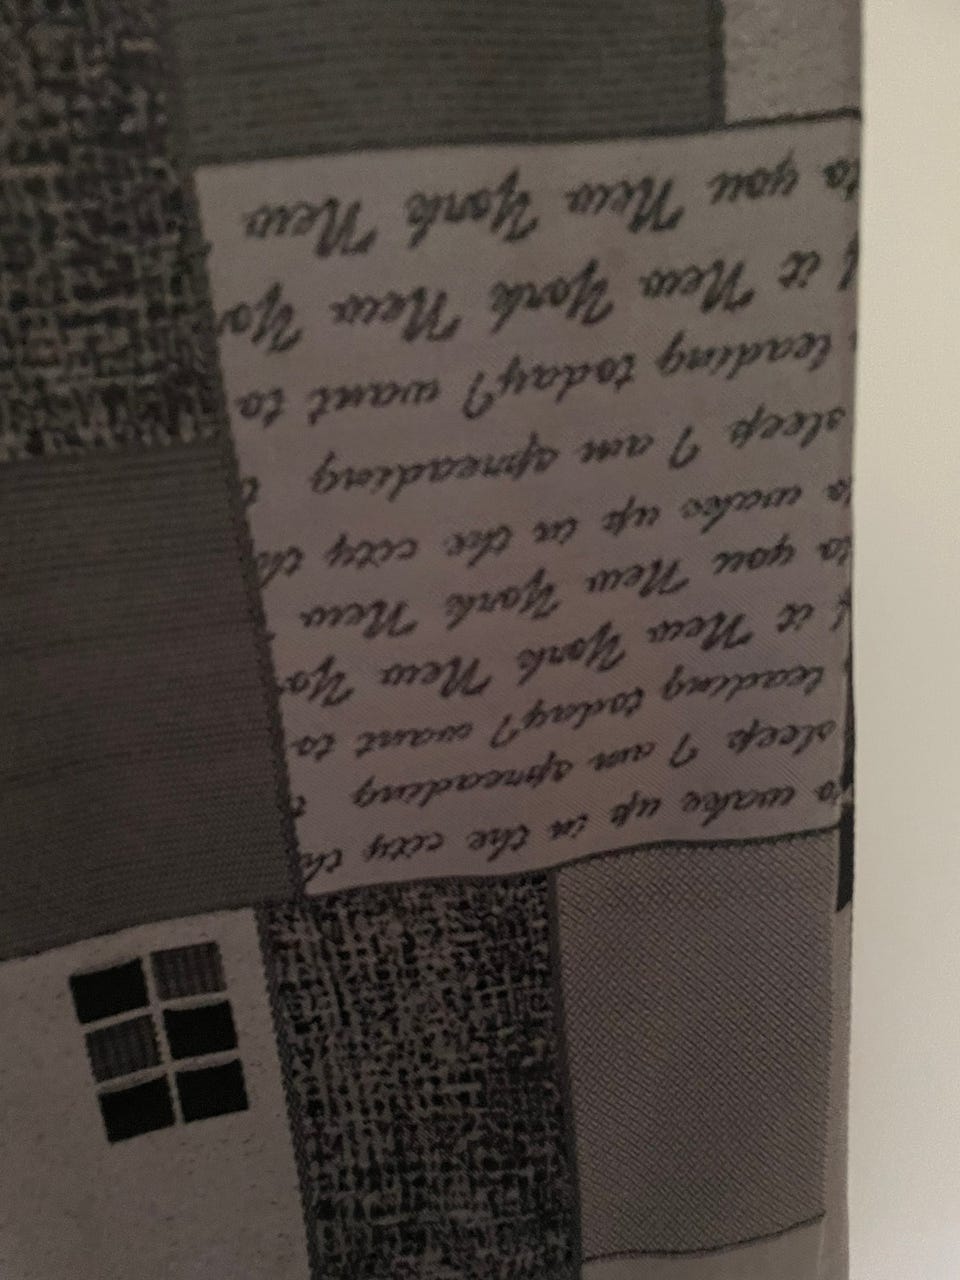 wake up in the city th
sleep I am spreading
leading today I want to
it New York New Yo
to you New York New
wake up in the city th
sleep I am spreading
leading today I want to
it New York New Yo
to you New York New